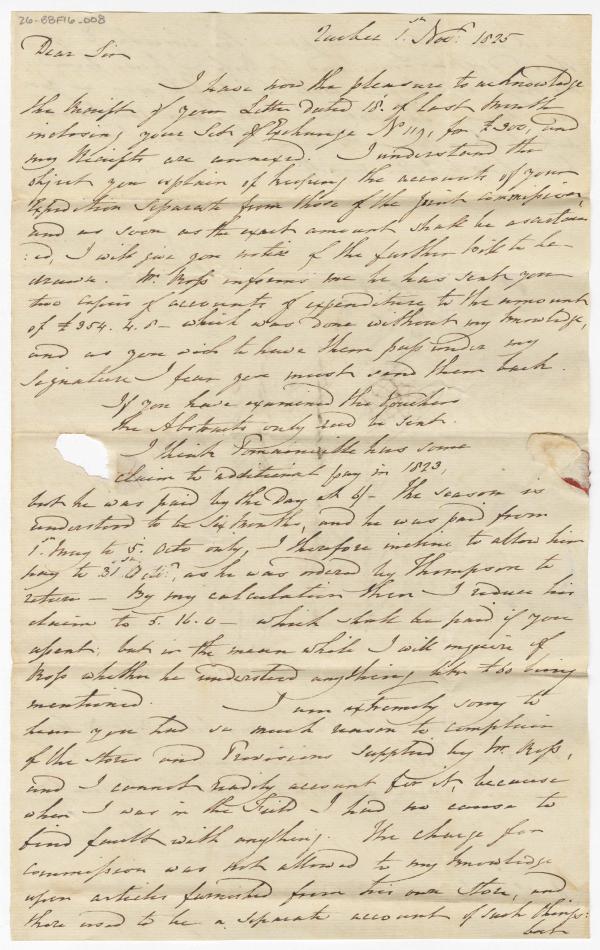 26-BBF16_008
Quebec 1st Novr. 1825
Dear Sir
I have now the pleasure to acknowledge
the Receipt of your Letter dated 18th of last month
inclosing your Set of Exchange No 119, for £300, and
my Receipts are annexed. I understand the
object you explain of keeping the accounts of your
Expedition separate from those of the joint commission,
and as soon as the exact amount shall be ascertain
:ed, I will give you notice of the further bill to be
drawn. Mr. Ross informs me he has sent you
two copies of accounts of expenditure to the amount
of £354. 4. 5 – which was done without my knowledge,
and as you wish to have them pass under my
Signature I fear you must send them back.
If you have examined the vouchers
the Abstracts only need be sent.
I think has some
claim to additional pay in 1823,
but he was paid by the Day at 6/- The season is
understood to be Six months, and he was paid from
1st May to 5. Octo only, – I therefore incline to allow him
pay to 31st Octr., as he was ordered by Thompson to
return – By my calculation then I reduce his
claim to 5. 16. 0 – which shall be paid if you
assent; but in the mean while I will enquire of
Ross whether he understood anything like £60 being
mentioned. I am extremely sorry to
hear you had so much reason to complain
of the Stores and Provisions supplied by Mr. Ross,
and I cannot readily account for it, because
when I was in the Field I had no cause to
find fault with anything. The charge for
commission was not allowed to my knowledge
upon articles furnished from his own Store, and
there used to be a separate account of such things:
but